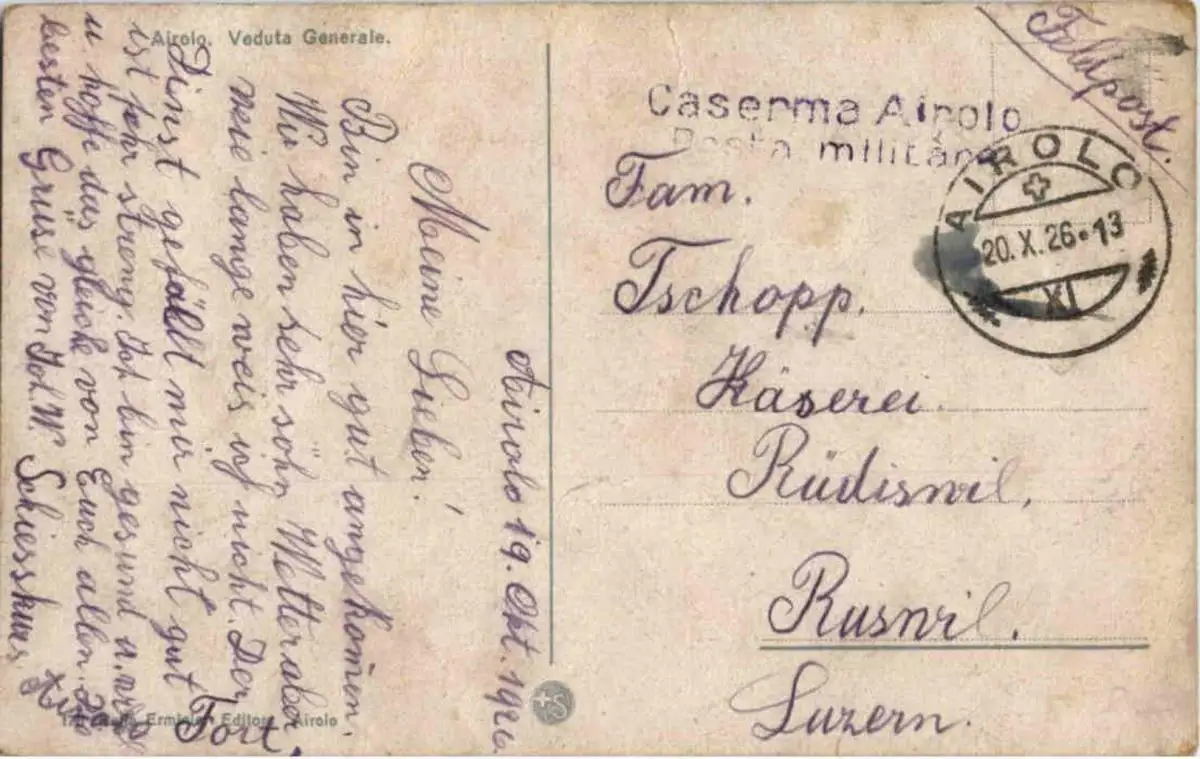 Airolo. Veduta Generale.
Airolo 19. Okt. 1926
Meine Lieben!
Bin in hier gut angekom̄en.
Wir haben sehr söhn Wetter aber
wie lange weis ich nicht. Der
Dinst gefällt mir nicht gut
ist sehr streng. Ich bin gesund
u hoffe das gleiche von Euch allen. Die
besten Grüse von Joh. W. Schiesskurs
Fort.
Editore Airolo
Feldpost.
Caserma Airolo
Posta militare
AIROLO
20. X. 26 • 13
XI
Fam.
Tschopp.
Käserei.
Rüdiswil.
Ruswil.
Luzern.